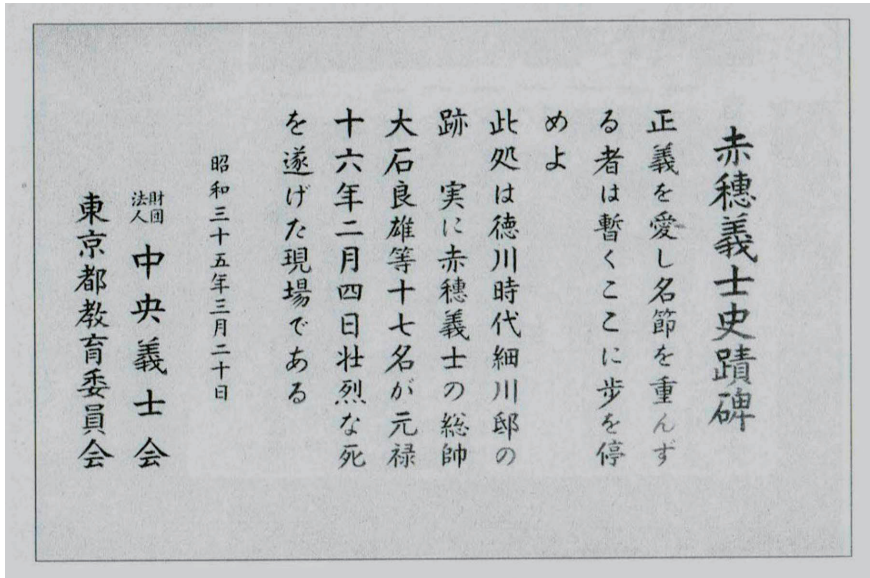 赤穗義士史蹟碑
正義を愛し名節を重んず
る者は暫くここに步を停
めよ
此処は徳川時代細川邸の
跡　実に赤穗義士の総帥
大石良雄等十七名が元禄
十六年二月四日壮烈な死
を遂げた現場である
昭和三十五年三月二十日
財団法人 中央義士会
東京都教育委員会